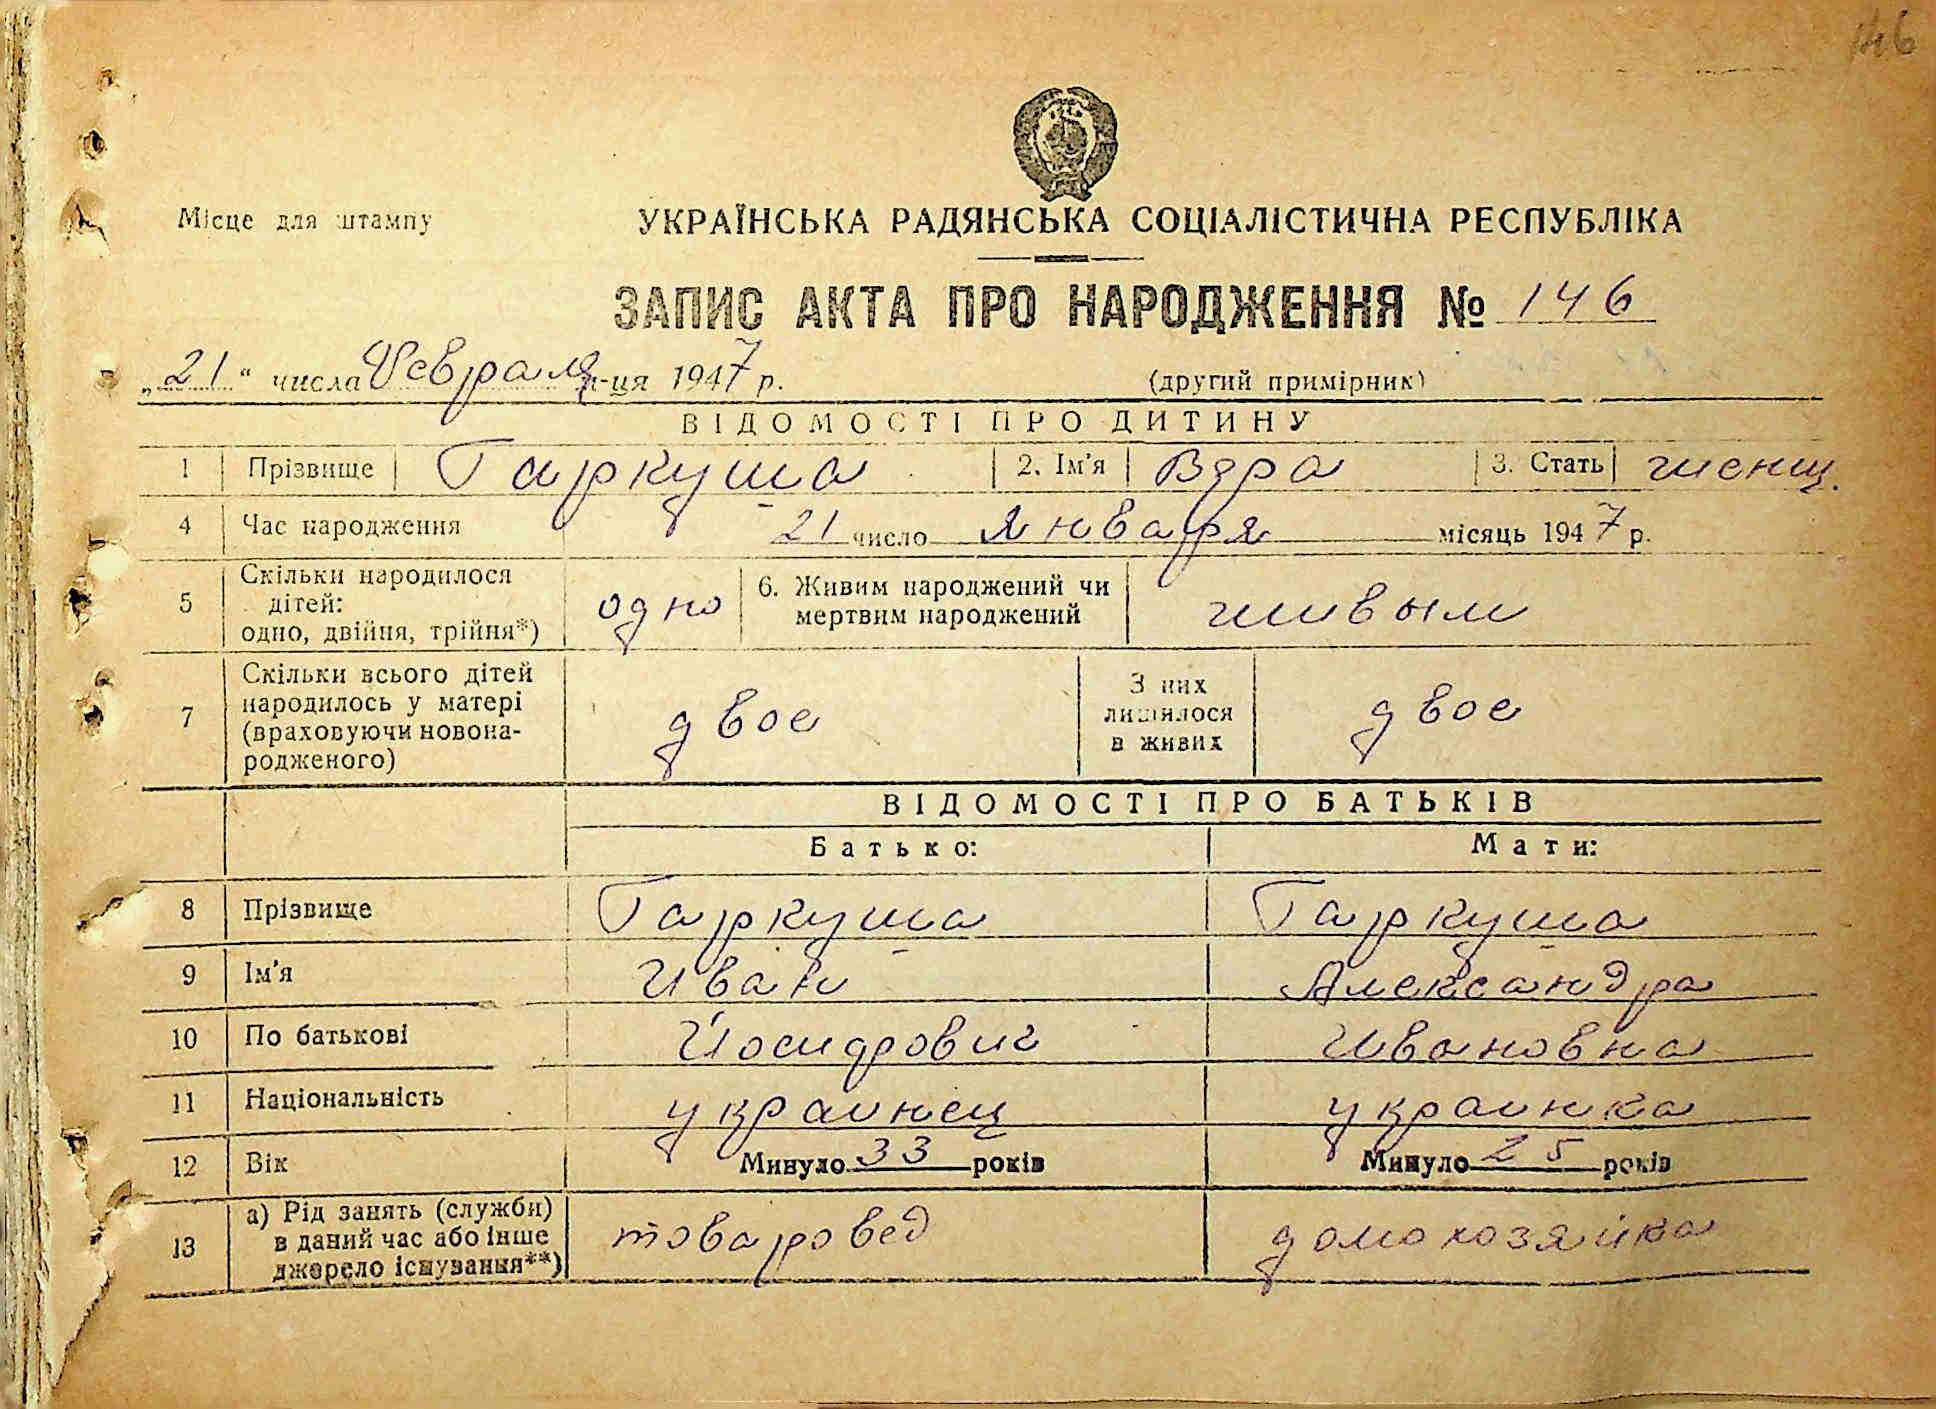 146
Місце для штампу
УКРАЇНСЬКА РАДЯНСЬКА СОЦІАЛІСТИЧНА РЕСПУБЛІКА
ЗАПИС АКТА ПРО НАРОДЖЕННЯ № 146
„21“ числа Февраля м-ця 1947 р. (другий примірник)
ВІДОМОСТІ ПРО ДИТИНУ
1 Прізвище Гаркуша 2. Ім'я Вера 3. Стать женщ.
4 Час народження 21 число января місяць 1947 р.
5 Скільки народилося дітей: одно, двійня, трійня*) одно 6. Живим народжений чи мертвим народжений живым
7 Скільки всього дітей народилось у матері (враховуючи новонародженого) двое З них лишилося в живих двое
ВІДОМОСТІ ПРО БАТЬКІВ
Батько: Мати:
8 Прізвище Гаркуша Гаркуша
9 Ім'я Иван Александра
10 По батькові Йосифович Ивановна
11 Національність украинец украинка
12 Вік Минуло 33 років Минуло 25 років
13 а) Рід занять (служби) в даний час або інше джерело існування**) товаровед домохозяйка